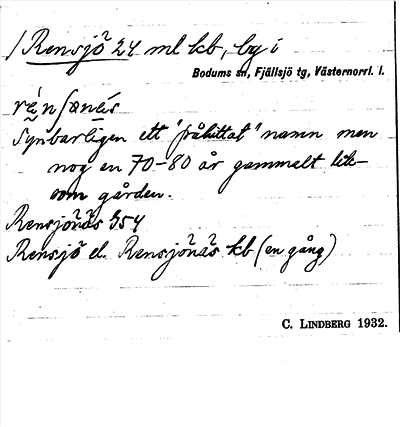 Rensjö 24 ml kb, by i
Bodums sn, Fjällsjö tg, Västernorrl. l.
Synbarligen ett "påhittat" namn men
nog en 70-80 år gammalt lik-
som gården.
Rensjönäs GS4
Rensjö el. Rensjönäs kb (en gång)
C. LINDBERG 1932.